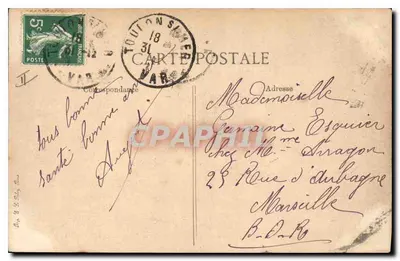 5c
POSTES
TOULON S MER
18
31
VAR
VAR
CARTE POSTALE
Correspondance
Adresse
Tous bonne
santé bonne a
CPARAMA
Mademoiselle
Germaine Esquier
chez Mme Arragon
25 Rue d'Aubagne
Marseille
B-D-R